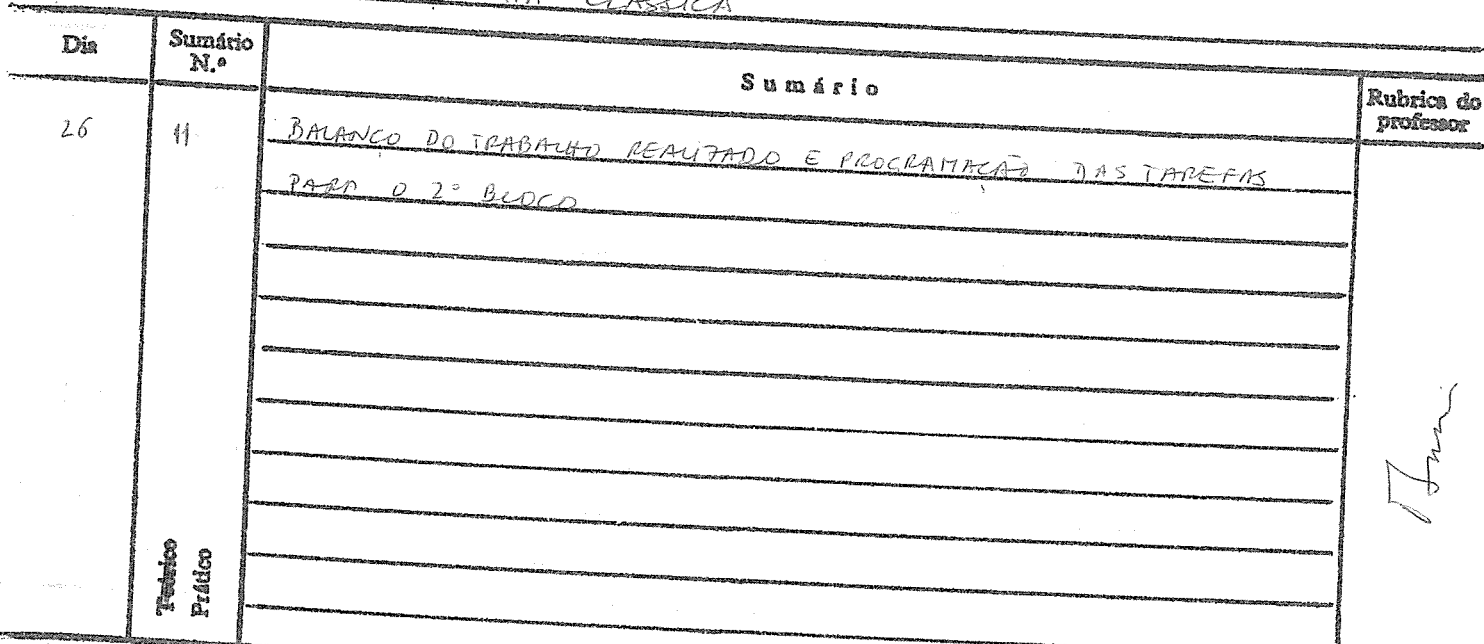 CLÁSSICA
Dia
Sumário N.º
Sumário
Rubrica do professor
26
11
BALANÇO DO TRABALHO REALIZADO E PROGRAMAÇÃO DAS TAREFAS
PARA O 2º BLOCO
Teórico
Prático